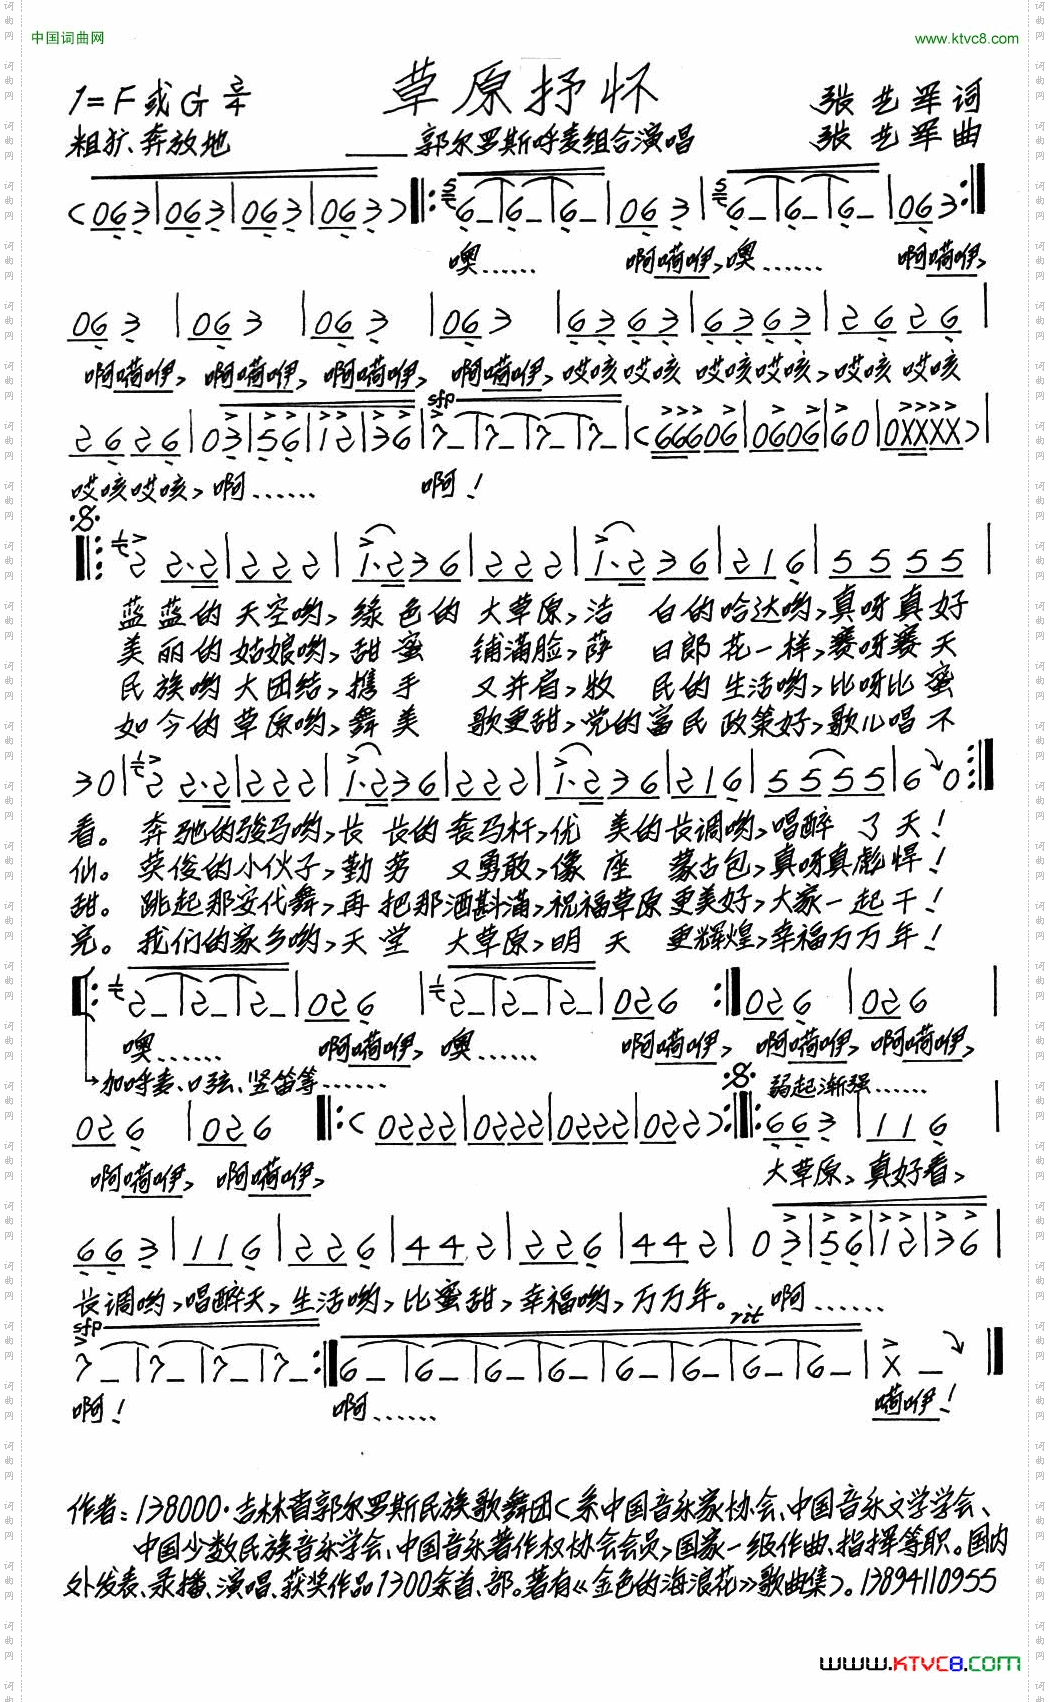 中国词曲网
www.ktvc8.com
草原抒怀
1=F或G 2/4
张艺军词
粗犷、奔放地
——郭尔罗斯呼麦组合演唱
张艺军曲
(063|063|063|063)‖:6_|6_|6_|063|6_|6_|6_|063:‖
噢…… 啊嗬咿,噢…… 啊嗬咿,
063|063|063|063|6363|6363|2626|
啊嗬咿,啊嗬咿,啊嗬咿,啊嗬咿,哎咳哎咳 哎咳哎咳,哎咳 哎咳
sfp
2626|03|56|12|36|7_|7_|7_|7_|(66606|0606|60|0XXXX)|
哎咳哎咳,啊…… 啊!
‖:2 2·2|222|1·236|222|1·236|216|5555|
蓝蓝的天空哟,绿色的大草原,洁 白的哈达哟,真呀真好
美丽的姑娘哟,甜蜜 铺满脸,萨 日郎花一样,赛呀赛天
民族哟大团结,携手 又并肩,牧 民的生活哟,比呀比蜜
如今的草原哟,舞美 歌更甜,党的富民政策好,歌儿唱不
30|2 2·2|222|1·236|222|1·236|216|5555|6 0:‖
看。奔驰的骏马哟,长 长的套马杆,优 美的长调哟,唱醉 了天!
仙。英俊的小伙子,勤劳 又勇敢,像座 蒙古包,真呀真彪悍!
甜。跳起那安代舞,再把那酒斟满,祝福草原更美好,大家一起干!
完。我们的家乡哟,天堂 大草原,明天 更辉煌,幸福万万年!
‖:2_|2_|2_|026|2_|2_|2_|026:‖026|026|
噢…… 啊嗬咿,噢…… 啊嗬咿,啊嗬咿,啊嗬咿,
加呼麦、口弦、竖笛等……
弱起渐强……
026|026‖:(0222|0222|0222|022):‖:663|116|
啊嗬咿,啊嗬咿,
大草原、真好看,
663|116|226|442|226|442|03|56|12|36|
长调哟,唱醉天,生活哟,比蜜甜,幸福哟,万万年。啊……
sfp
rit
7_|7_|7_|7_:‖6_|6_|6_|6_|6_|6_|6_|6_|X_‖
啊! 啊…… 嗬咿!
作者:138000·吉林省郭尔罗斯民族歌舞团(系中国音乐家协会、中国音乐文学学会、
中国少数民族音乐学会、中国音乐著作权协会会员,国家一级作曲、指挥等职。国内
外发表、录播、演唱、获奖作品1300余首、部。著有《金色的海浪花》歌曲集)。13894110955
www.KTVC8.com